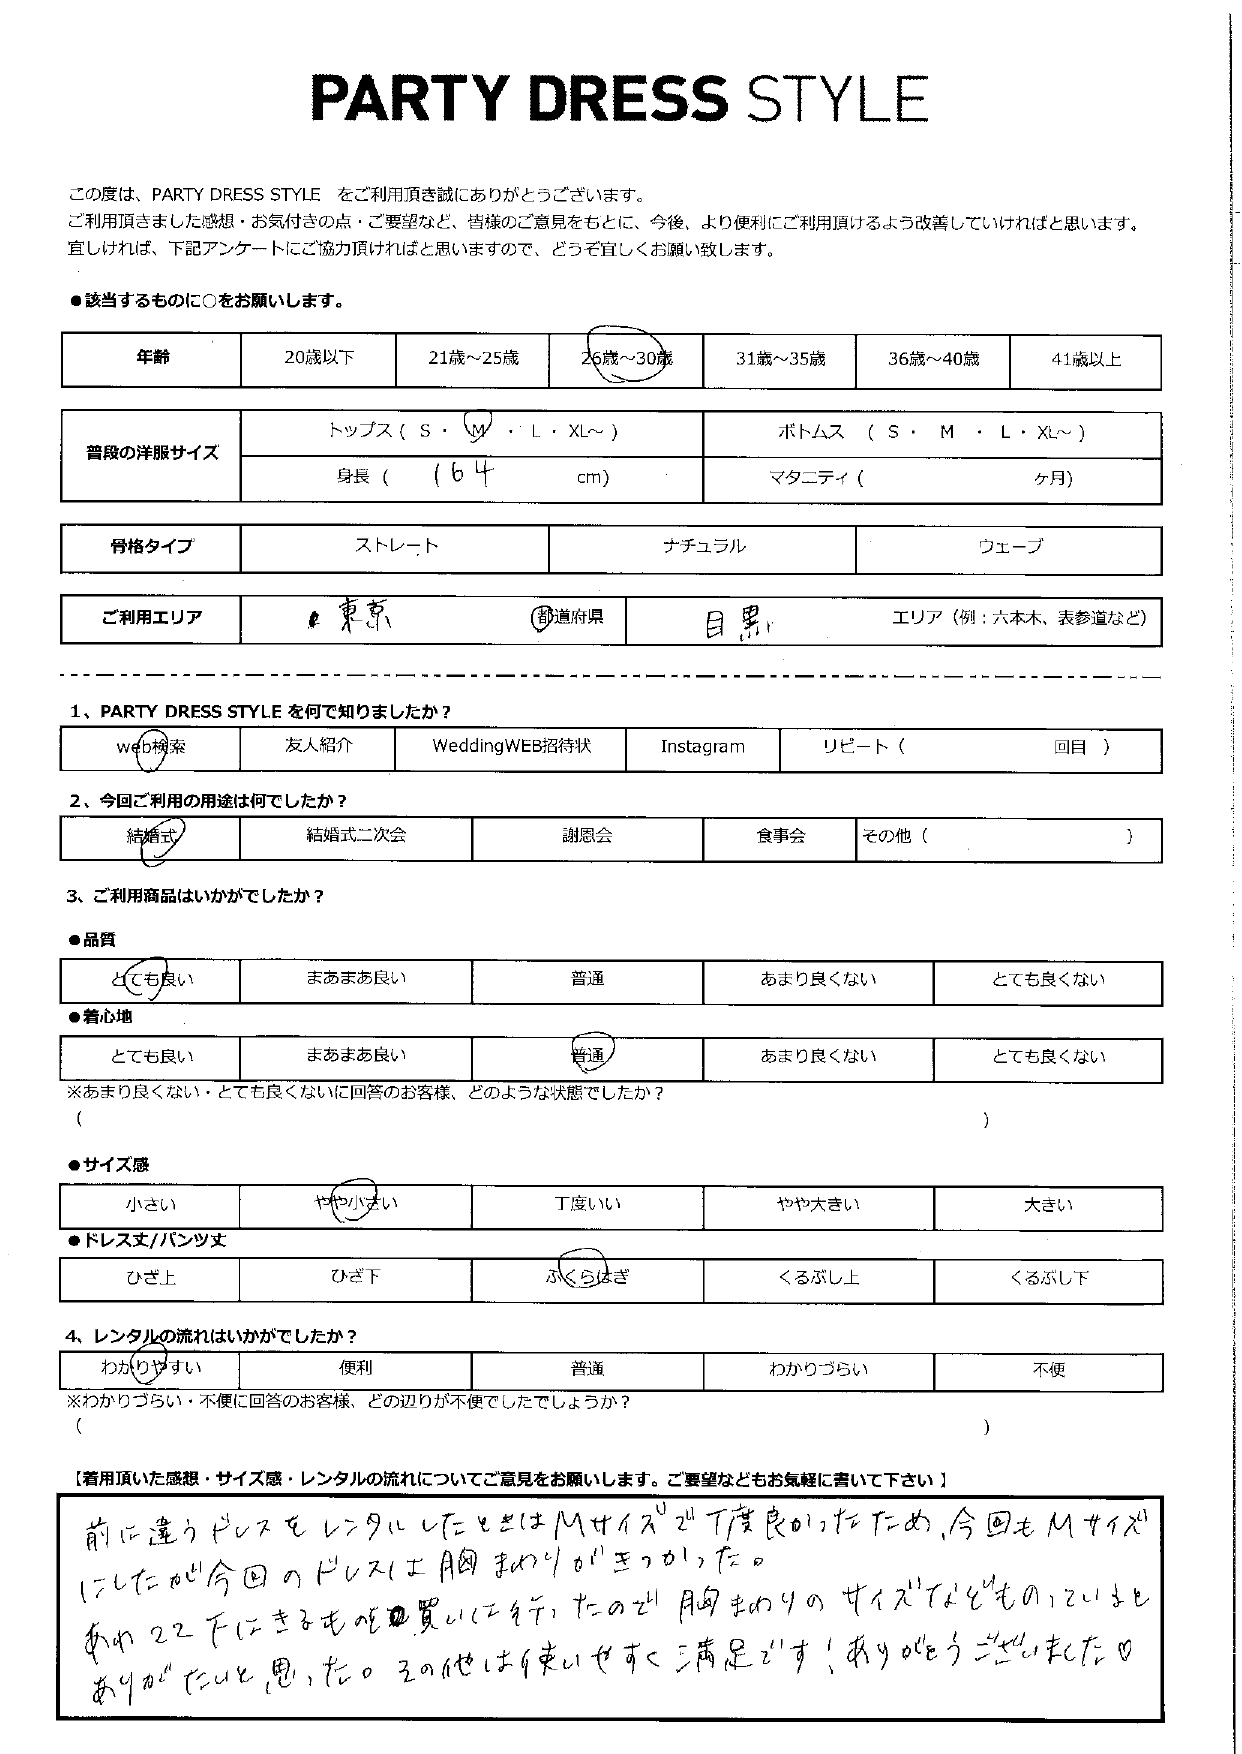 PARTY DRESS STYLE
この度は、PARTY DRESS STYLE　をご利用頂き誠にありがとうございます。
ご利用頂きました感想・お気付きの点・ご要望など、皆様のご意見をもとに、今後、より便利にご利用頂けるよう改善していければと思います。
宜しければ、下記アンケートにご協力頂ければと思いますので、どうぞ宜しくお願い致します。
●該当するものに○をお願いします。
年齢 20歳以下 21歳～25歳 26歳～30歳 31歳～35歳 36歳～40歳 41歳以上
普段の洋服サイズ トップス ( S ・ M ・ L ・ XL～ ) ボトムス ( S ・ M ・ L ・ XL～ )
身長 ( 164 cm) マタニティ ( ヶ月)
骨格タイプ ストレート ナチュラル ウェーブ
ご利用エリア 東京 都道府県 目黒 エリア（例：六本木、表参道など）
1、PARTY DRESS STYLE を何で知りましたか？
web検索 友人紹介 WeddingWEB招待状 Instagram リピート（ 回目 ）
2、今回ご利用の用途は何でしたか？
結婚式 結婚式二次会 謝恩会 食事会 その他（ ）
3、ご利用商品はいかがでしたか？
●品質
とても良い まあまあ良い 普通 あまり良くない とても良くない
●着心地
とても良い まあまあ良い 普通 あまり良くない とても良くない
※あまり良くない・とても良くないに回答のお客様、どのような状態でしたか？
( )
●サイズ感
小さい やや小さい 丁度いい やや大きい 大きい
●ドレス丈/パンツ丈
ひざ上 ひざ下 ふくらはぎ くるぶし上 くるぶし下
4、レンタルの流れはいかがでしたか？
わかりやすい 便利 普通 わかりづらい 不便
※わかりづらい・不便に回答のお客様、どの辺りが不便でしたでしょうか？
( )
【着用頂いた感想・サイズ感・レンタルの流れについてご意見をお願いします。ご要望などもお気軽に書いて下さい 】
前に違うドレスをレンタルしたときはMサイズで丁度良かったため、今回もMサイズ
にしたが今回のドレスは胸まわりがきつかった。
あわてて下にきるものを買いに行ったので胸まわりのサイズなどものっていると
ありがたいと思った。その他は使いやすく満足です！ありがとうございました♡